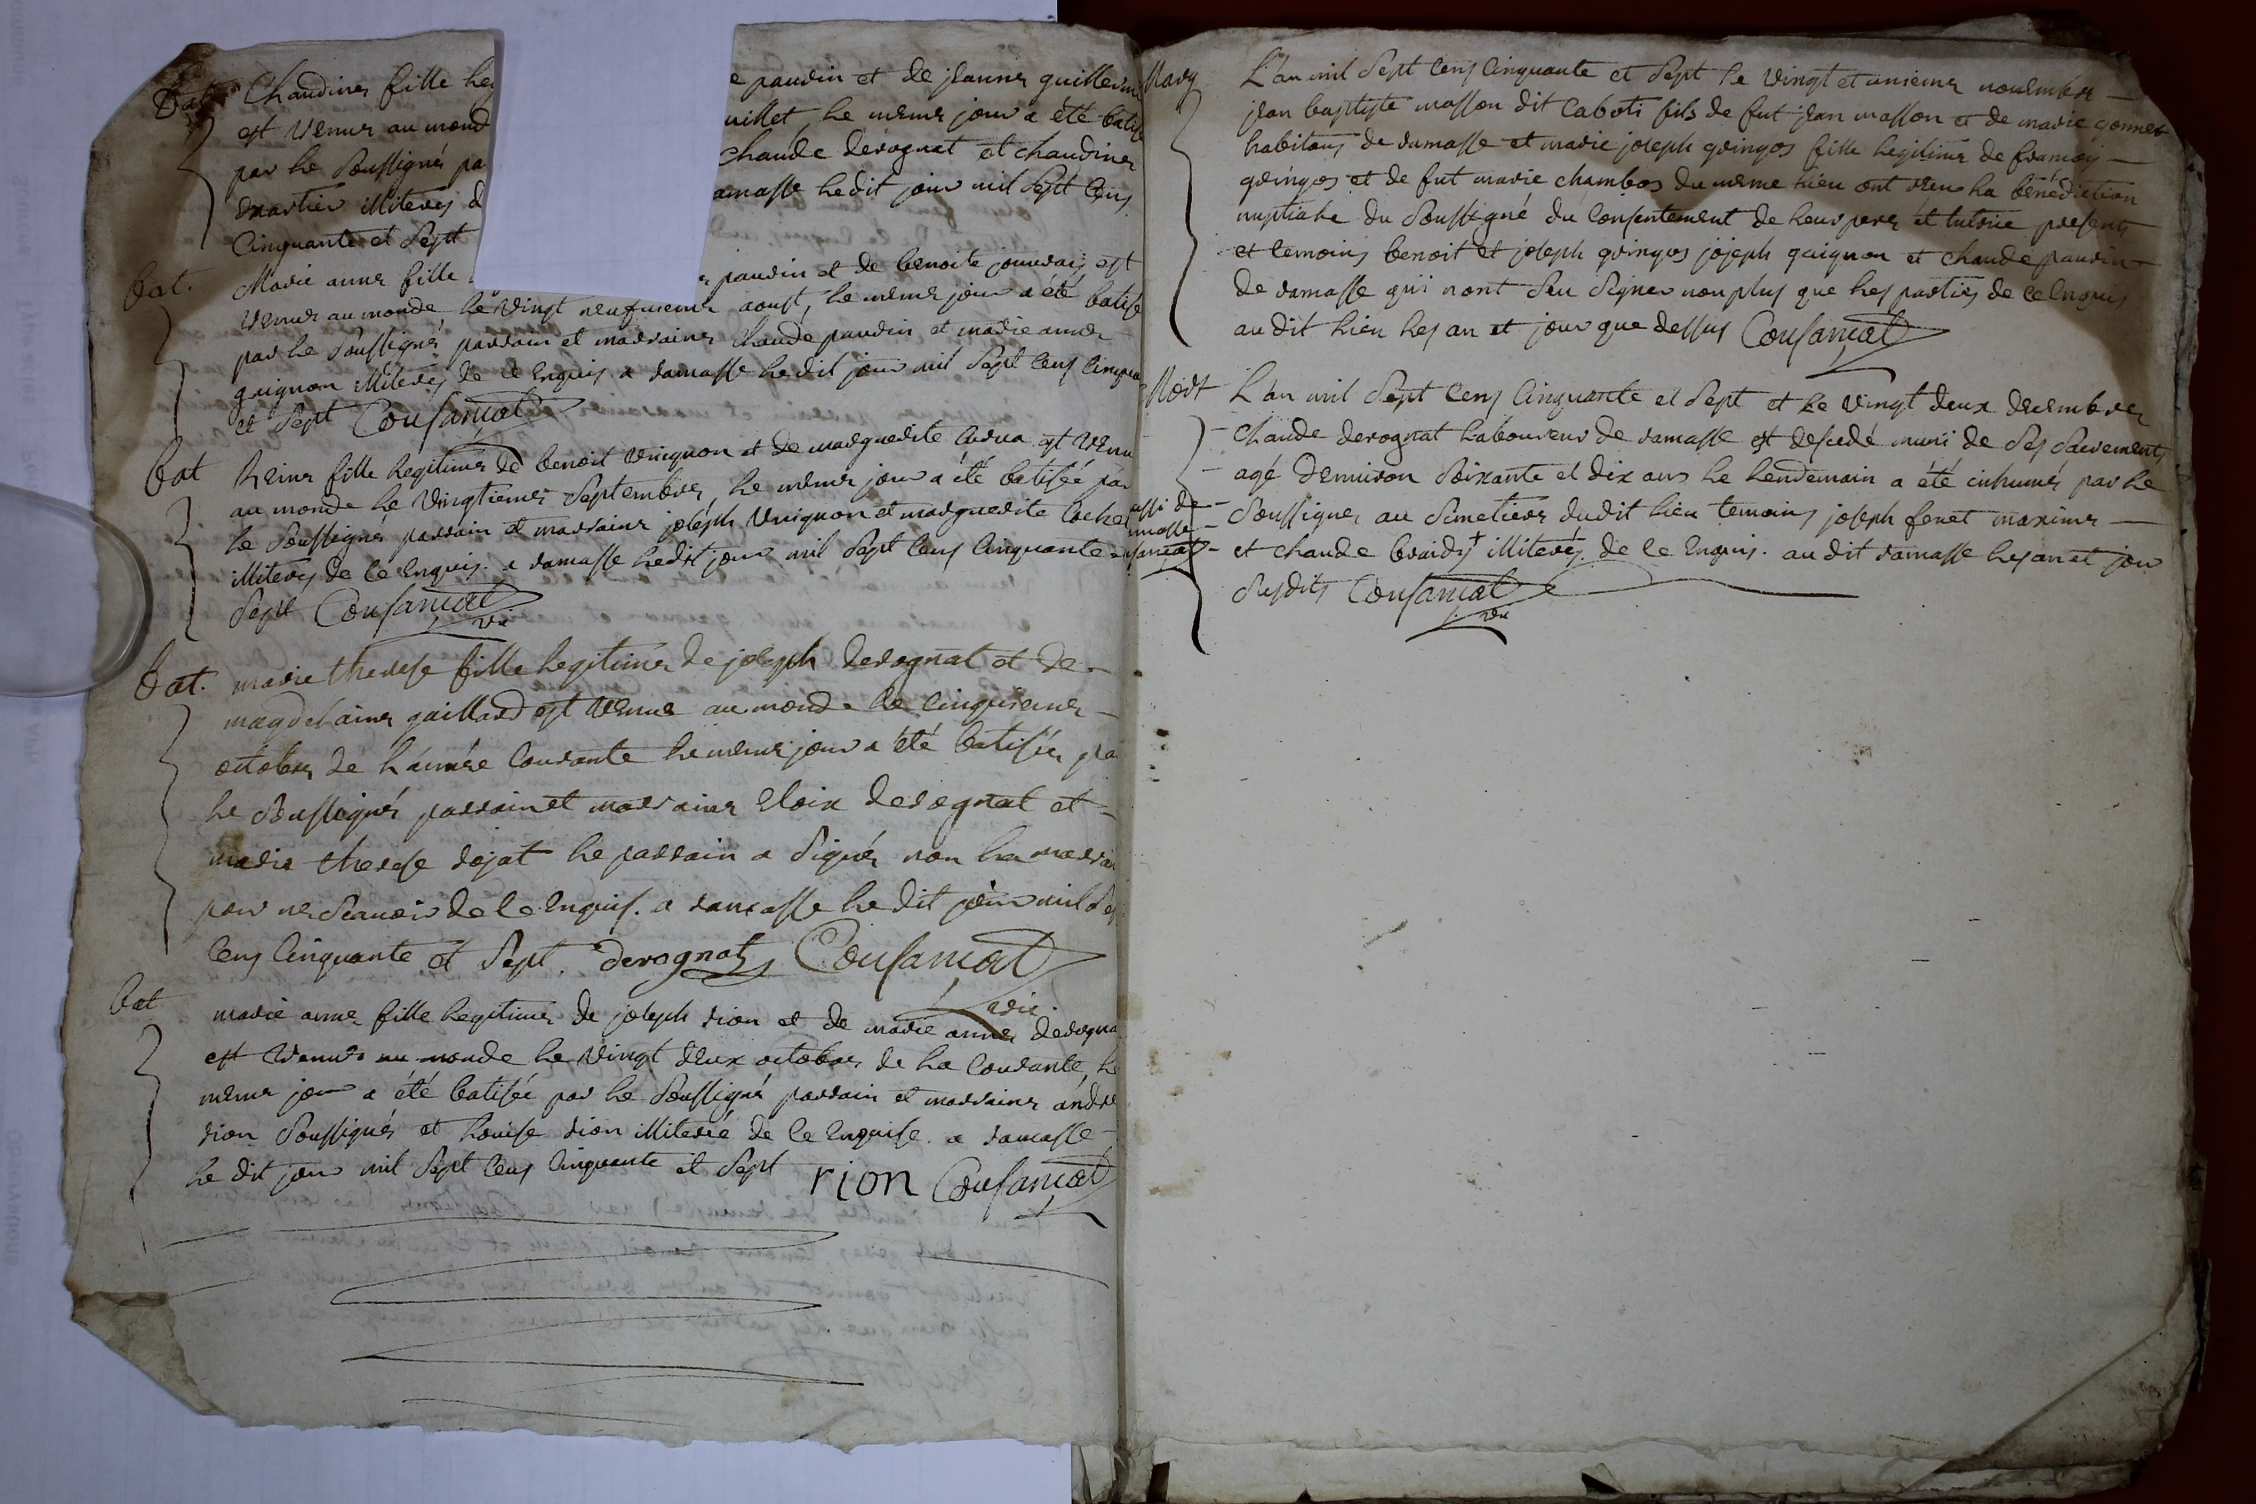 Bat Claudine fille leg
e paudin et de jeanne guillerm
est venue au mond
uillet, le meme jour a été batisé
par le soussigné pa
claude derognat et claudine
illiteres d
amasse ledit jour mil sept cens
cinquante et sept
Bat. Marie anne fille
paudin et de benoite est
venue au monde le vingt neufvieme aoust, le meme jour a été batisé
par le soussigné parrain et marraine claude paudin et marie anne
guignon illiteres de ce enquis a ramasse ledit jour mil sept cens cinqua
et sept Cousancat
Bat reine fille legitime de benoit vuignon et de marguerite est venu
au monde le vingtieme septembre, le meme jour a été batisée par
le soussigné parrain et marraine joseph vuignon et marguerite aussi de
illiteres de ce enquis. a ramasse ledit jour mil sept cens cinquante
sept Cousancat
Bat. marie therese fille legitime de joseph derognat et de
magdelaine gaillard est venue au monde le cinquieme
octobre de l'année courante le meme jour a été batisée pa
le soussigné parrain et marraine eloix derognat et
marie therese rojat le parrain a signé non la marrai
pour ne scavoir de ce enquis. a ramasse le dit jour mil se
cens cinquante et sept. derognat Cousancat
vic.
Bat marie anne fille legitime de joseph rion et de marie anne derogna
est venue au monde le vingt deux octobre de la courante, le
meme jour a été batisée par le soussigné parrain et marraine andre
rion soussigné et louise rion illiteré de ce enquise. a ramasse
le dit jour mil sept cens cinquante et sept rion Cousancat
Mary L'an mil sept cens cinquante et sept le vingt et unieme novembre
jean baptyste masson dit caboti fils de fut jean masson et de marie gonnet
habitans de ramasse et marie joseph gringos fille legitime de francois
gringos et de fut marie chambos du meme lieu ont recu la bénédiction
nuptiale du soussigné du consentement de leur pere et tutrice presents
et temoins benoit et joseph gringos jojeph guignon et claude paudin
de ramasse qui n'ont seu signer non plus que les parties de ce enquis
au dit lieu les an et jour que dessus Cousancat
Mort L'an mil sept cens cinquante et sept et le vingt deux decembre
claude derognat laboureur de ramasse est descedé muni de ses sacrements
agé d'environ soixante et dix ans le lendemain a été inhumé par le
soussigné au simetiere dudit lieu temoins joseph fenet
et claude illiterés de ce enquis. au dit ramasse les an et jour
susdits Cousancat
vic